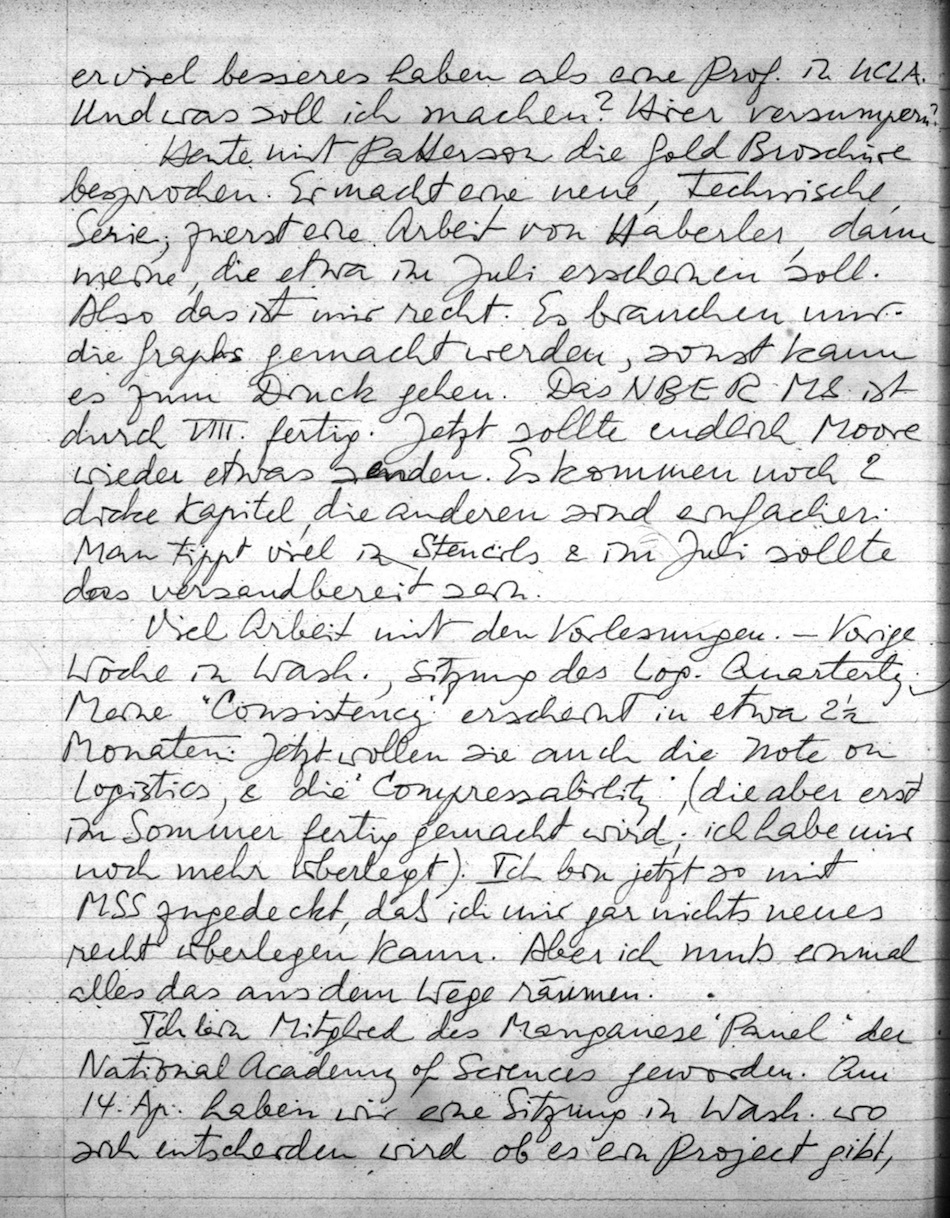 er viel besseres haben als eine Prof. in UCLA.
Und was soll ich machen? Hier versumpern?
Heute mit Patterson die Gold Broschüre
besprochen. Er macht eine neue, Technische
Serie; zuerst eine Arbeit von Haberler, dann
meine, die etwa im Juli erscheinen soll.
Also das ist mir recht. Es brauchen nur
die Graphs gemacht werden, sonst kann
es zum Druck gehen. Das NBER MS ist
durch VIII. fertig. Jetzt sollte endlich Moore
wieder etwas senden. Es kommen noch 2
dicke Kapitel, die anderen sind einfacher.
Man tippt viel in Stencils & im Juli sollte
das versandbereit sein.
Viel Arbeit mit den Vorlesungen. – Vorige
Woche in Wash., Sitzung des Log. Quarterly.
Meine "Consistency" erscheint in etwa 2½
Monaten. Jetzt wollen sie auch die Note on
Logistics, & die "Compressability", (die aber erst
im Sommer fertig gemacht wird; ich habe mir
noch mehr überlegt). Ich bin jetzt so mit
MSS zugedeckt, daß ich mir gar nichts neues
recht überlegen kann. Aber ich muß einmal
alles das aus dem Wege räumen.
Ich bin Mitglied des Manganese "Panel" der
National Academy of Sciences geworden. Am
14. Ap. haben wir eine Sitzung in Wash. wo
sich entscheiden wird ob es ein Project gibt,